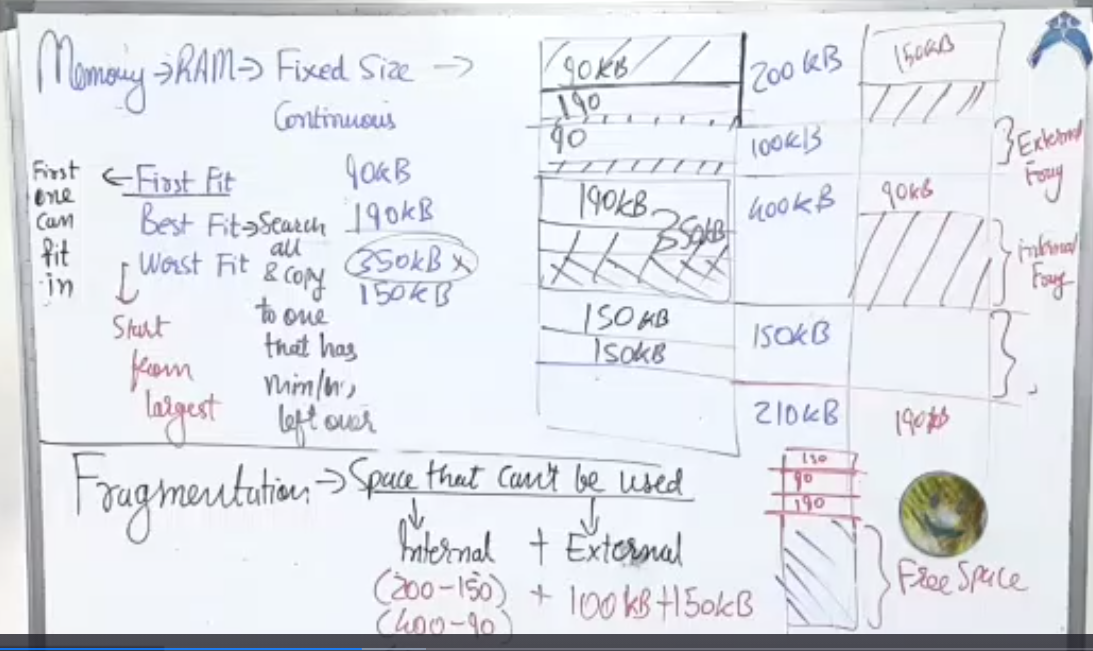 Memory → RAM → Fixed Size →
Continuous
First one can fit in
← First Fit
Best Fit → Search all & copy to one that has
left over
Worst Fit
Start from largest
90KB
190KB
350KB x
150KB
90KB
190
90
190KB
350KB
150KB
150KB
200KB
100KB
400KB
150KB
210KB
150KB
90KB
190KB
External Frag
internal Frag
Fragmentation → Space that can't be used
Internal + External
(200-150) + 100KB+150KB
(400-90)
150
90
190
Free Space